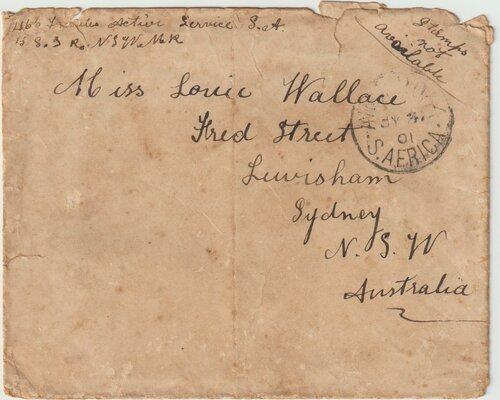 Active Service S. A
N S W. M R
Stamps
not
available
Miss Louie Wallace
Fred Street
Lewisham
Sydney
N. S. W
Australia
01
S. AFRICA